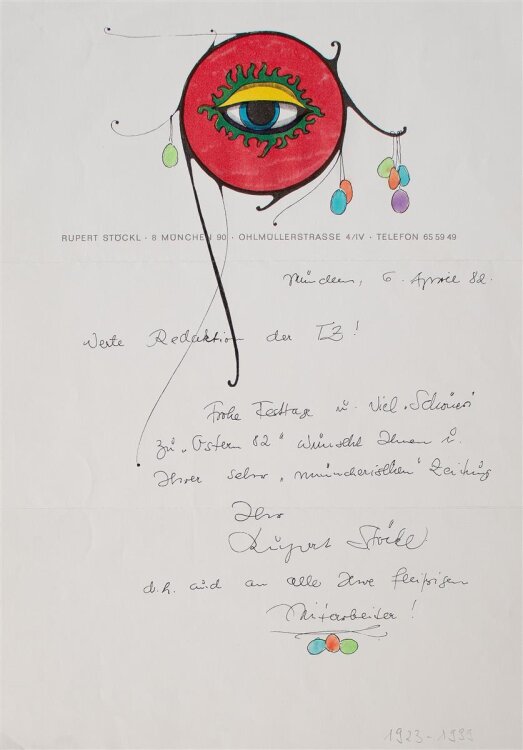 RUPERT STÖCKL · 8 MÜNCHEN 90 · OHLMÜLLERSTRASSE 4/IV · TELEFON 65 59 49
München, 6. April 82.
Werte Redaktion der TZ!
Frohe Festtage u. viel „Schönes"
zu „Ostern 82" wünscht Ihnen u.
Ihrer sehr „münchnerischen" Zeitung
Ihr
Rupert Stöckl
d.h. auch an alle Ihre fleißigen
Mitarbeiter!
1923-1999